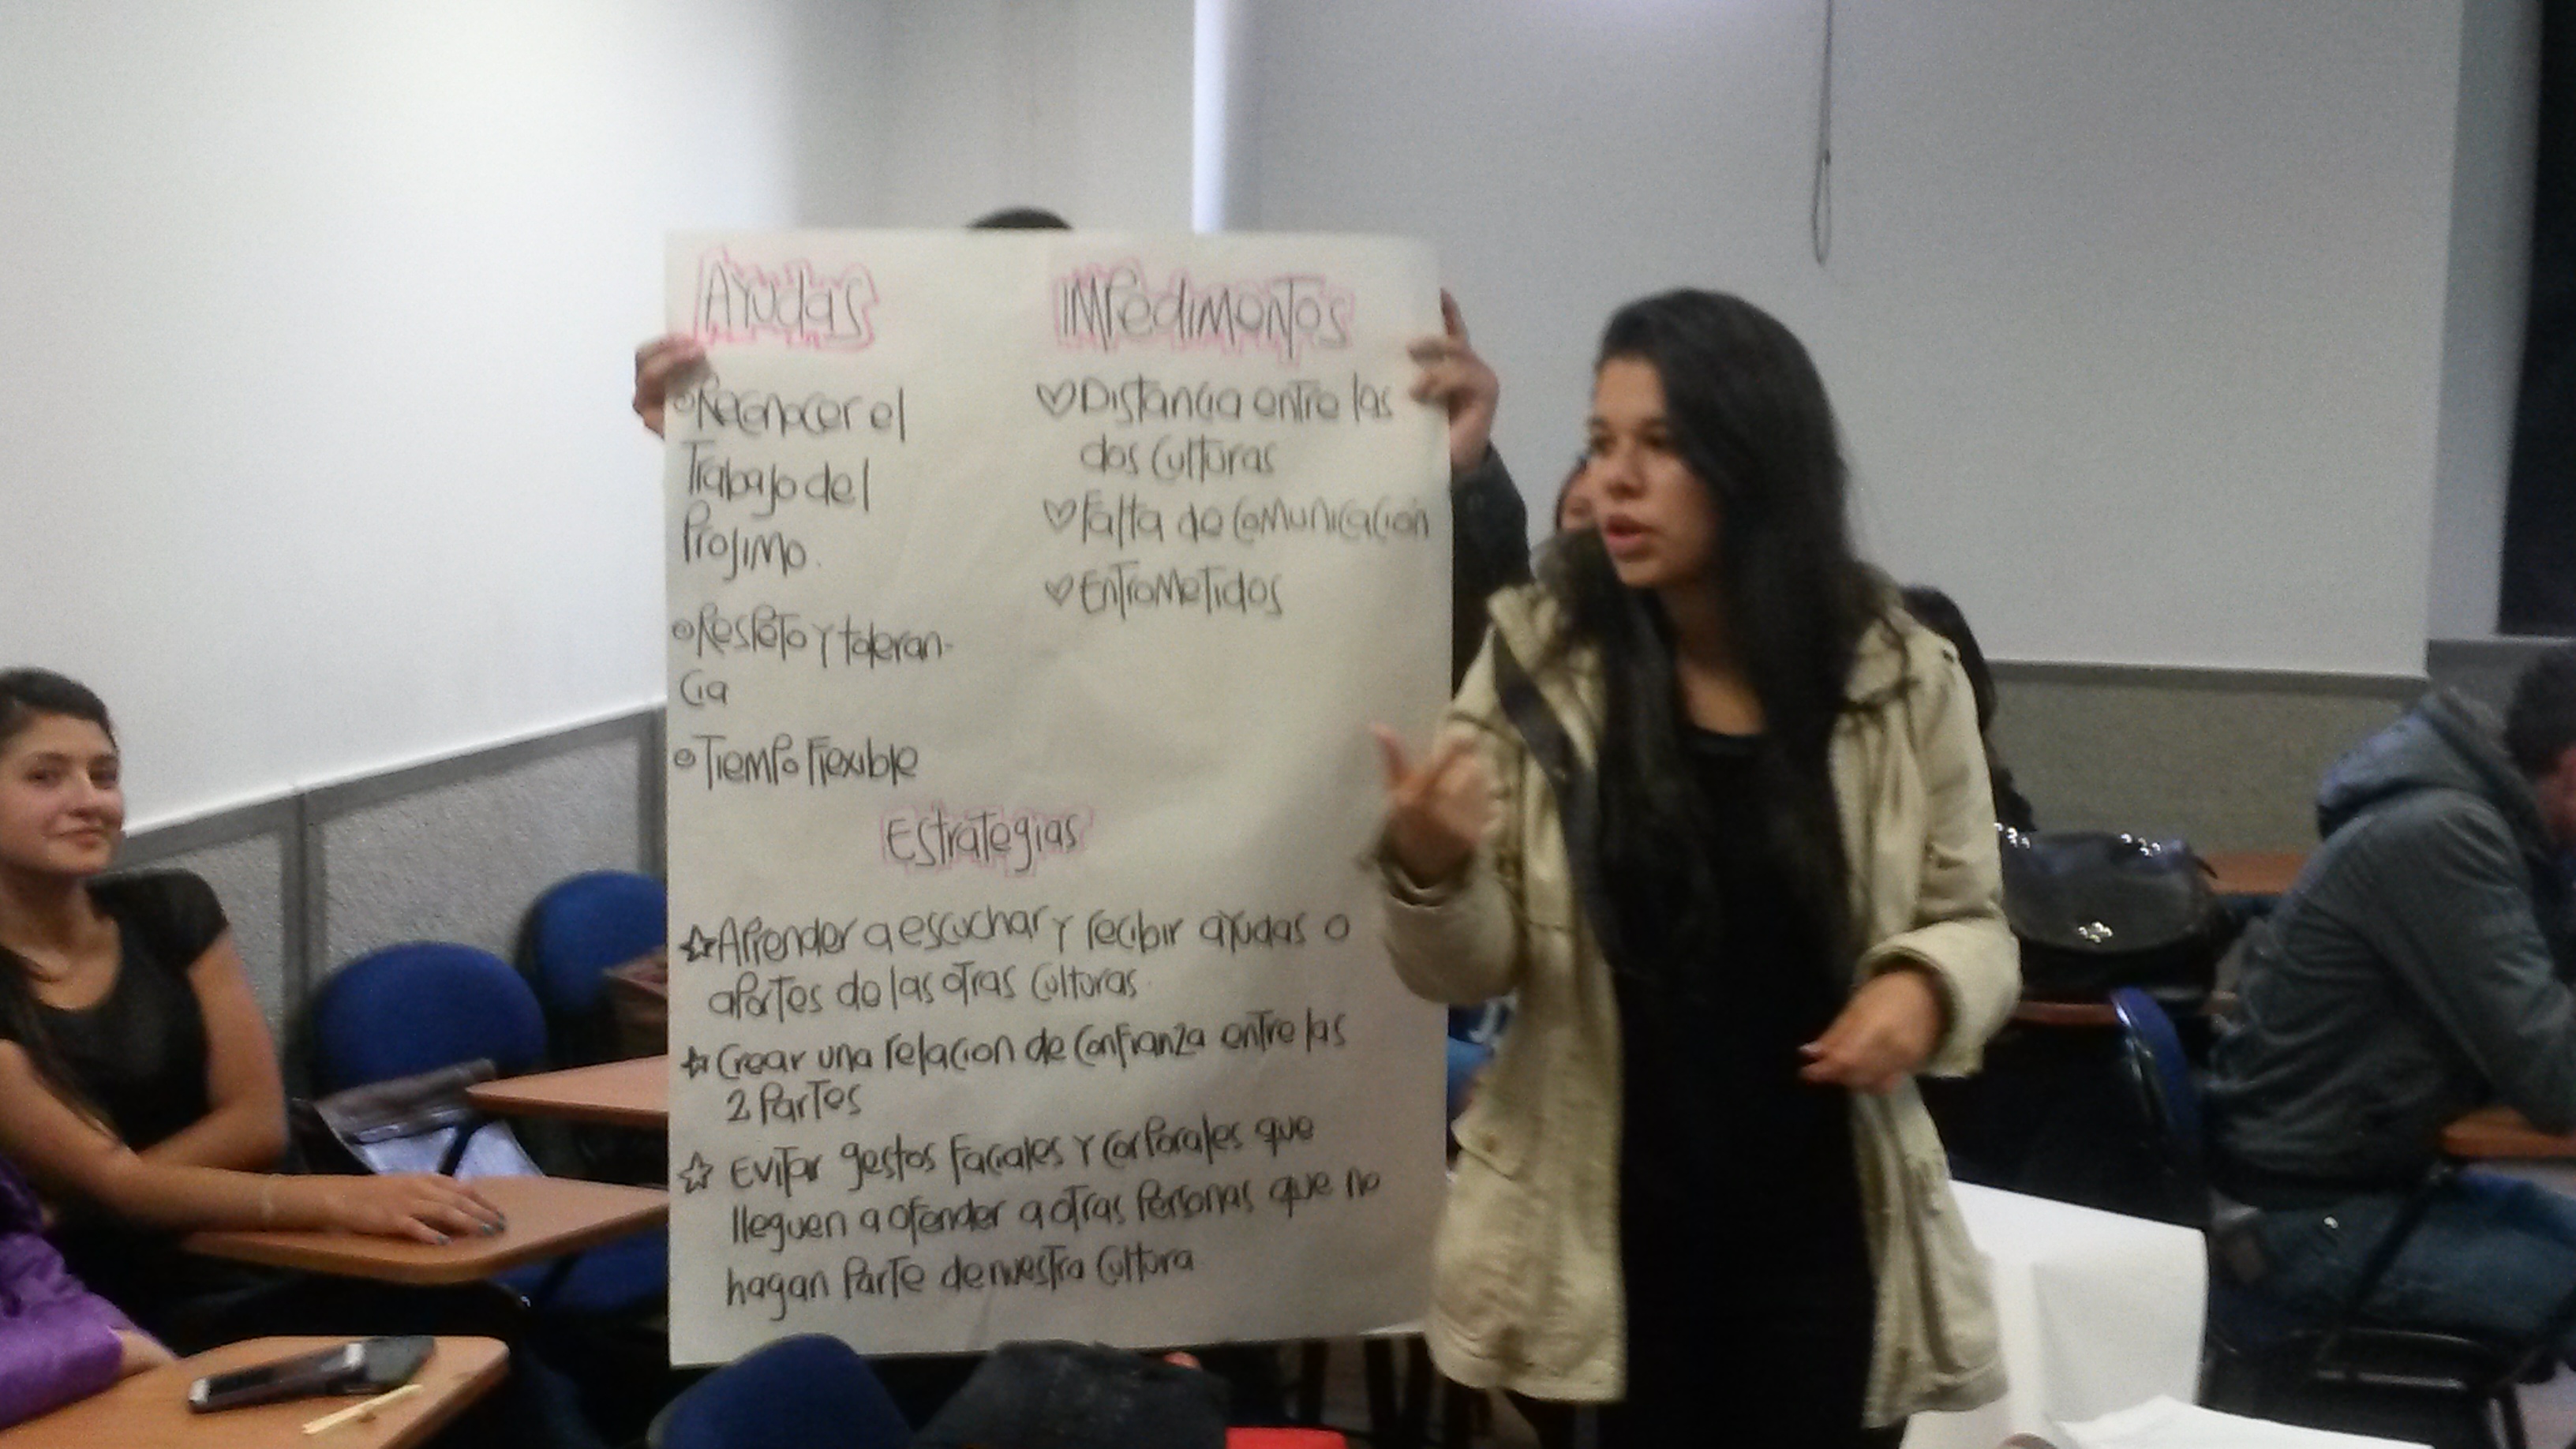 AYudas
Reconocer el
Trabajo del
Projimo.
Respeto Y toleran-
cia
Tiempo Flexible
IMPedimentos
Distancia entre las
dos Culturas
Falta de Comunicación
EntroMetidos
Estrategias
Aprender a escuchar y recibir ayudas o
aportes de las otras Culturas
Crear una relacion de Confianza entre las
2 Partes
Evitar gestos Faciales Y Corporales que
lleguen a ofender a otras Personas que no
hagan Parte de nuestra Cultura